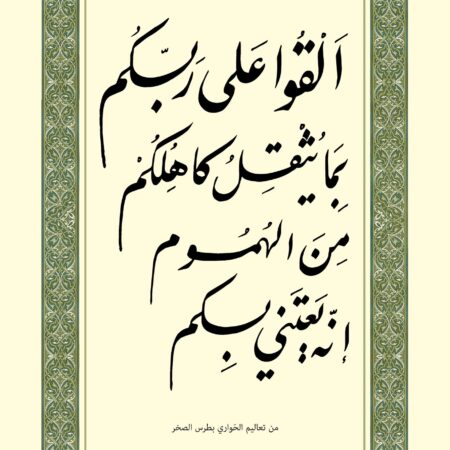 اَلْقُوا عَلى رَبِّكُم
بِمَا يُثْقِلُ كاهِلُكُمْ
مِنَ الهُمُوم
إنّه يَعتَني بِكم
من تعاليم الحَواري بطرس الصخر